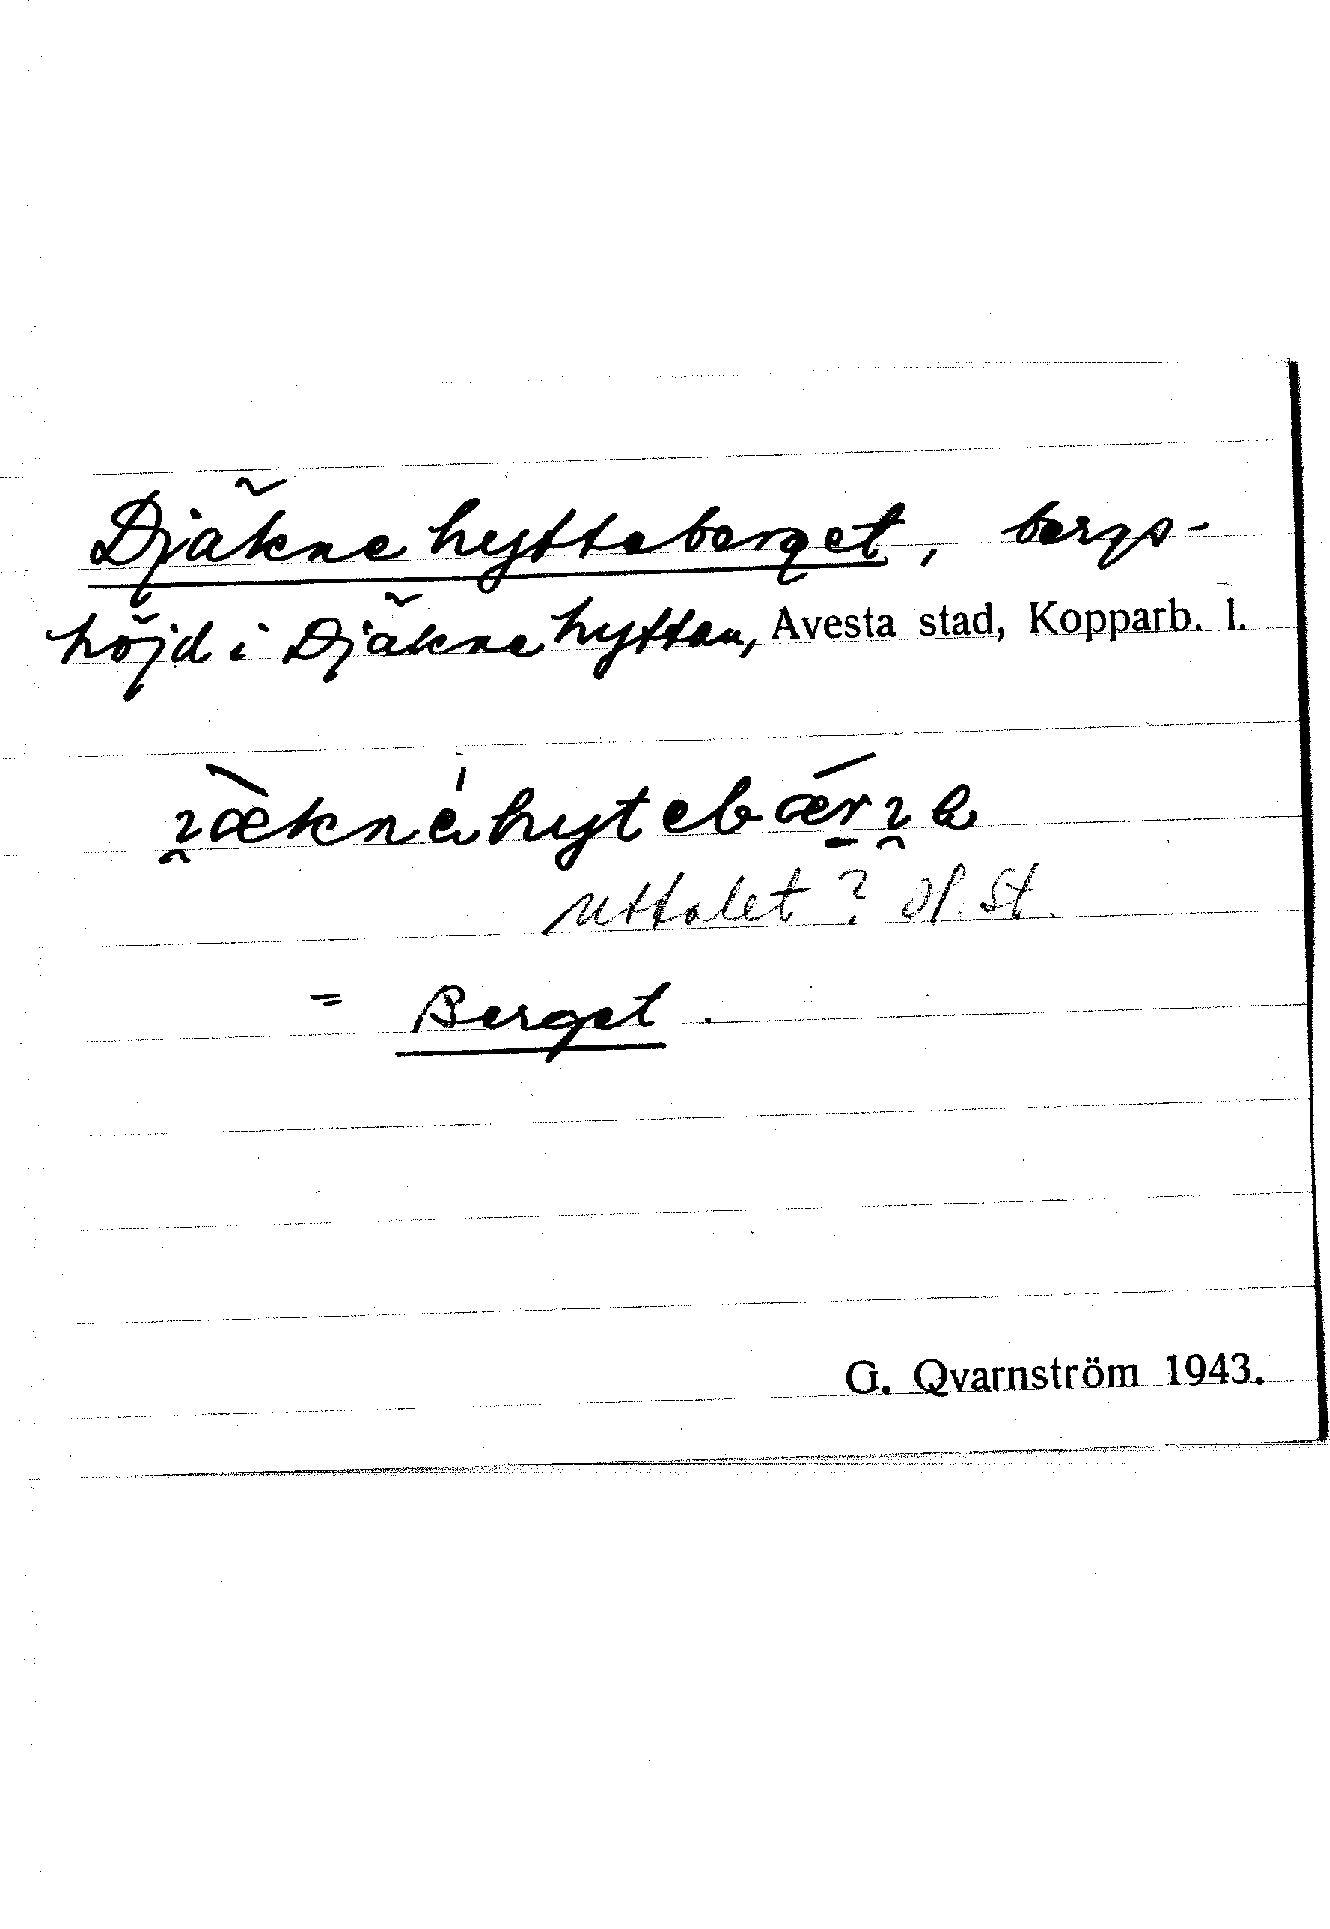 Djäknehytteberget, bergs-
höjd i Djäknehyttan, Avesta stad, Kopparb. l.
uttalet? H. St.
= Berget.
G. Qvarnström 1943.